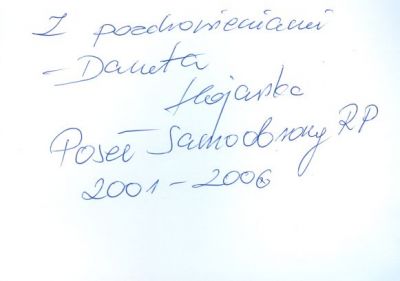 Z pozdrowieniami
- Danuta
Hojarska
Poseł Samoobrony RP
2001-2006